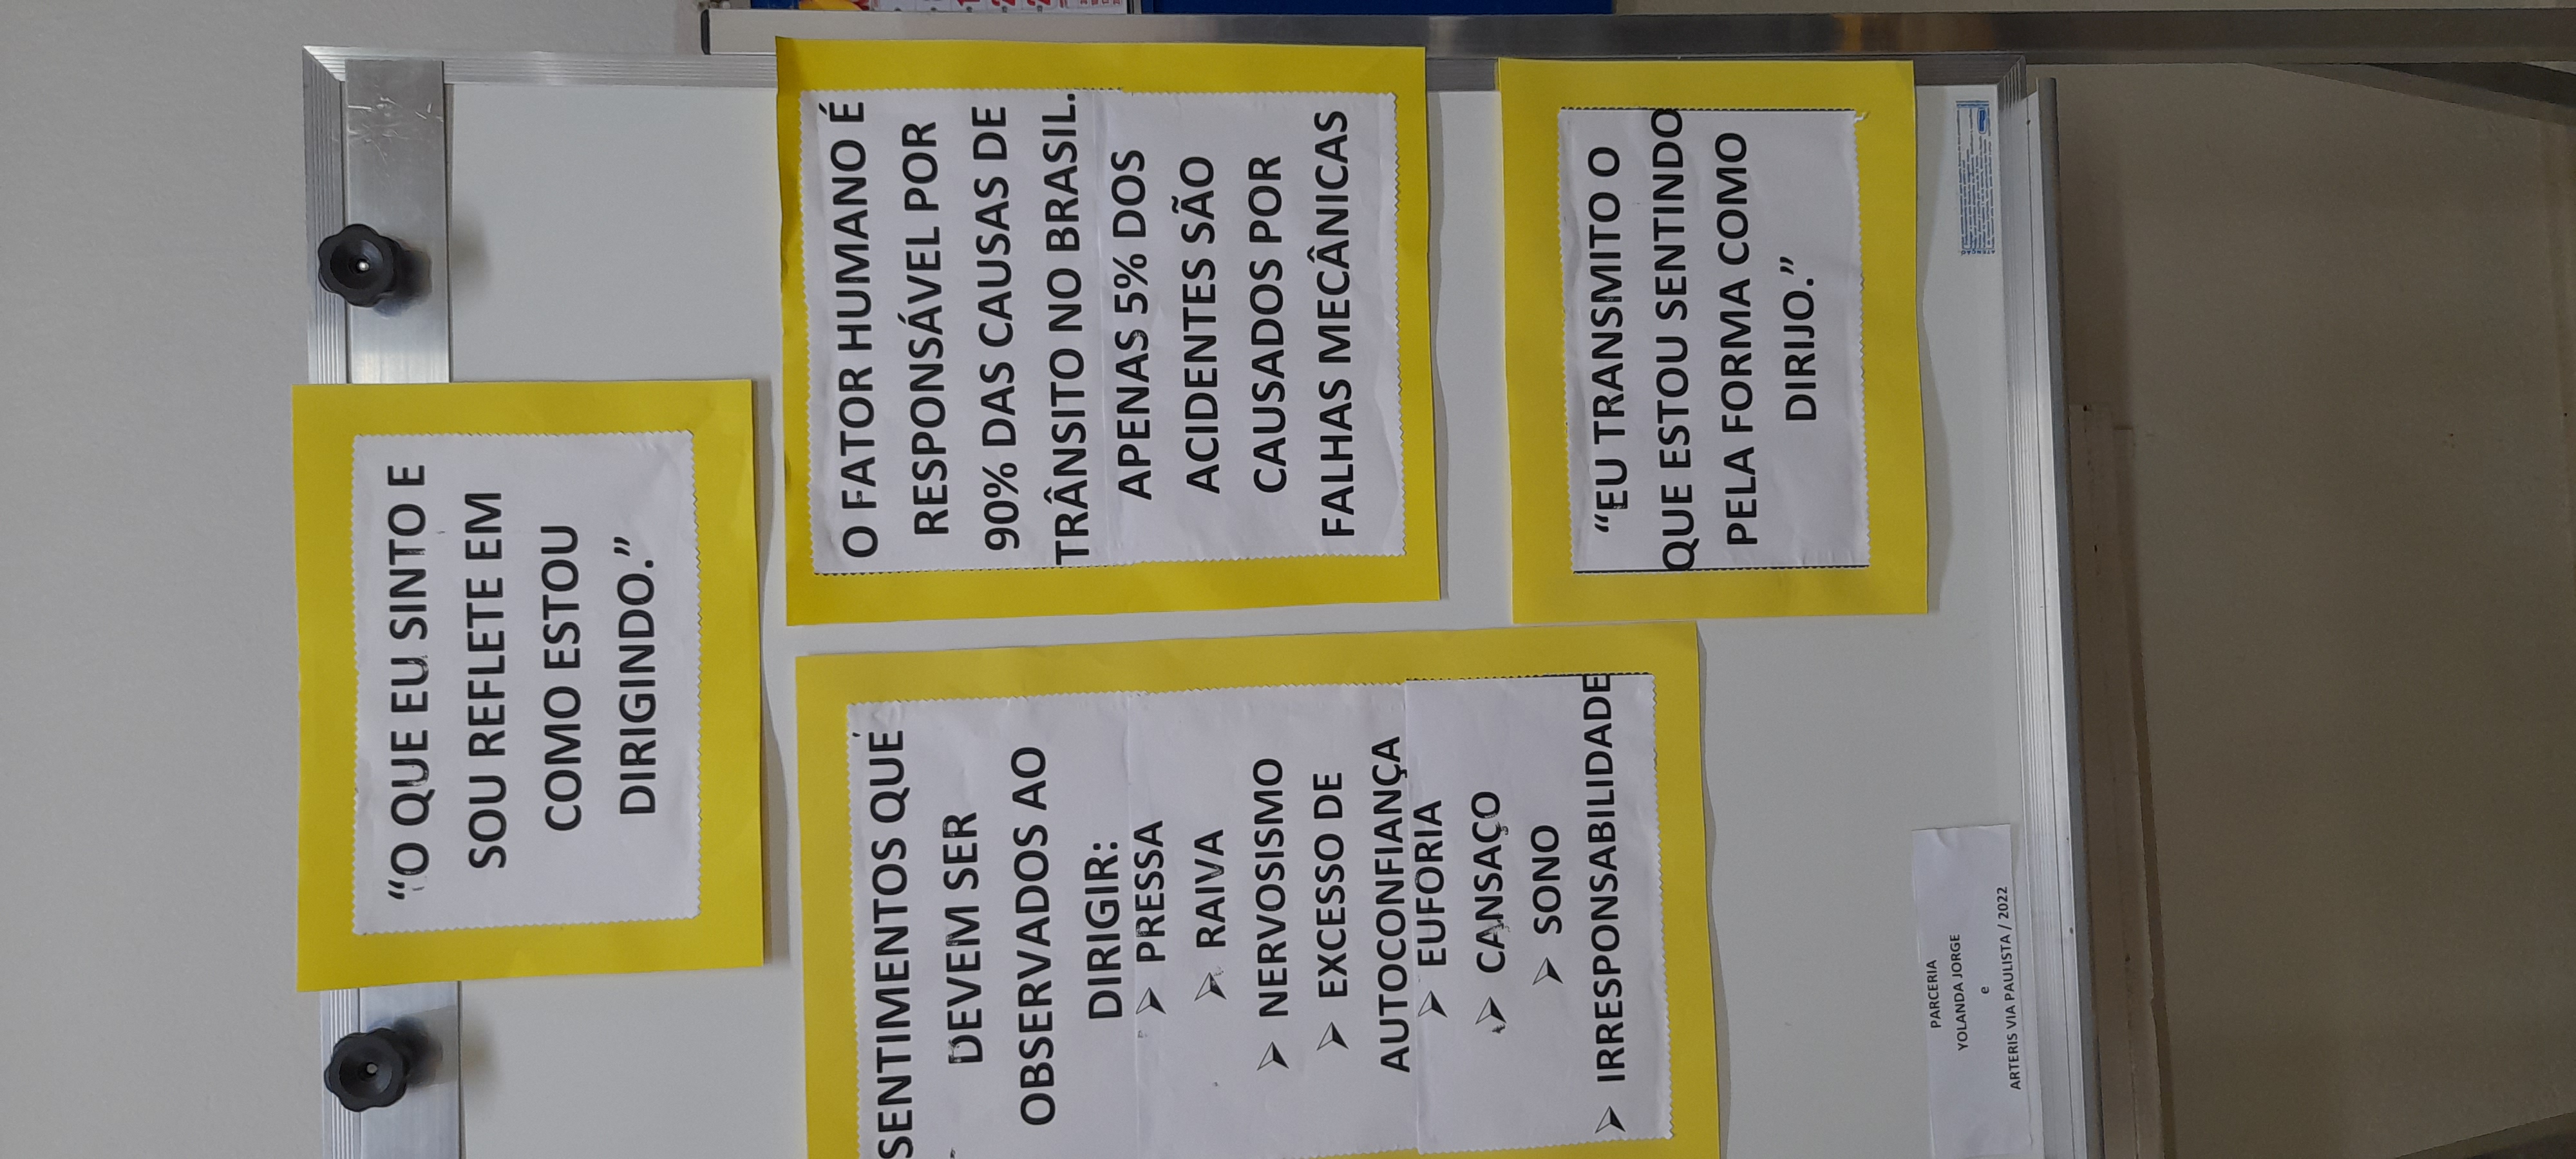 “O QUE EU SINTO E
SOU REFLETE EM
COMO ESTOU
DIRIGINDO.”
SENTIMENTOS QUE
DEVEM SER
OBSERVADOS AO
DIRIGIR:
➢ PRESSA
➢ RAIVA
➢ NERVOSISMO
➢ EXCESSO DE
AUTOCONFIANÇA
➢ EUFORIA
➢ CANSAÇO
➢ SONO
➢ IRRESPONSABILIDADE
O FATOR HUMANO É
RESPONSÁVEL POR
90% DAS CAUSAS DE
TRÂNSITO NO BRASIL.
APENAS 5% DOS
ACIDENTES SÃO
CAUSADOS POR
FALHAS MECÂNICAS
“EU TRANSMITO O
QUE ESTOU SENTINDO
PELA FORMA COMO
DIRIJO.”
PARCERIA
YOLANDA JORGE
e
ARTERIS VIA PAULISTA / 2022